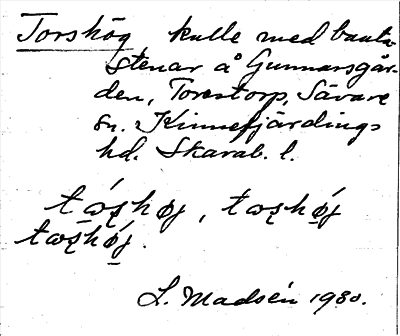 Torshög, kulle med bauta-
stenar å Gunnarsgår-
den, Torestorp, Sävare
sn. Kinnefjärdings
hd. Skarab. l.
L. Madsén 1930.